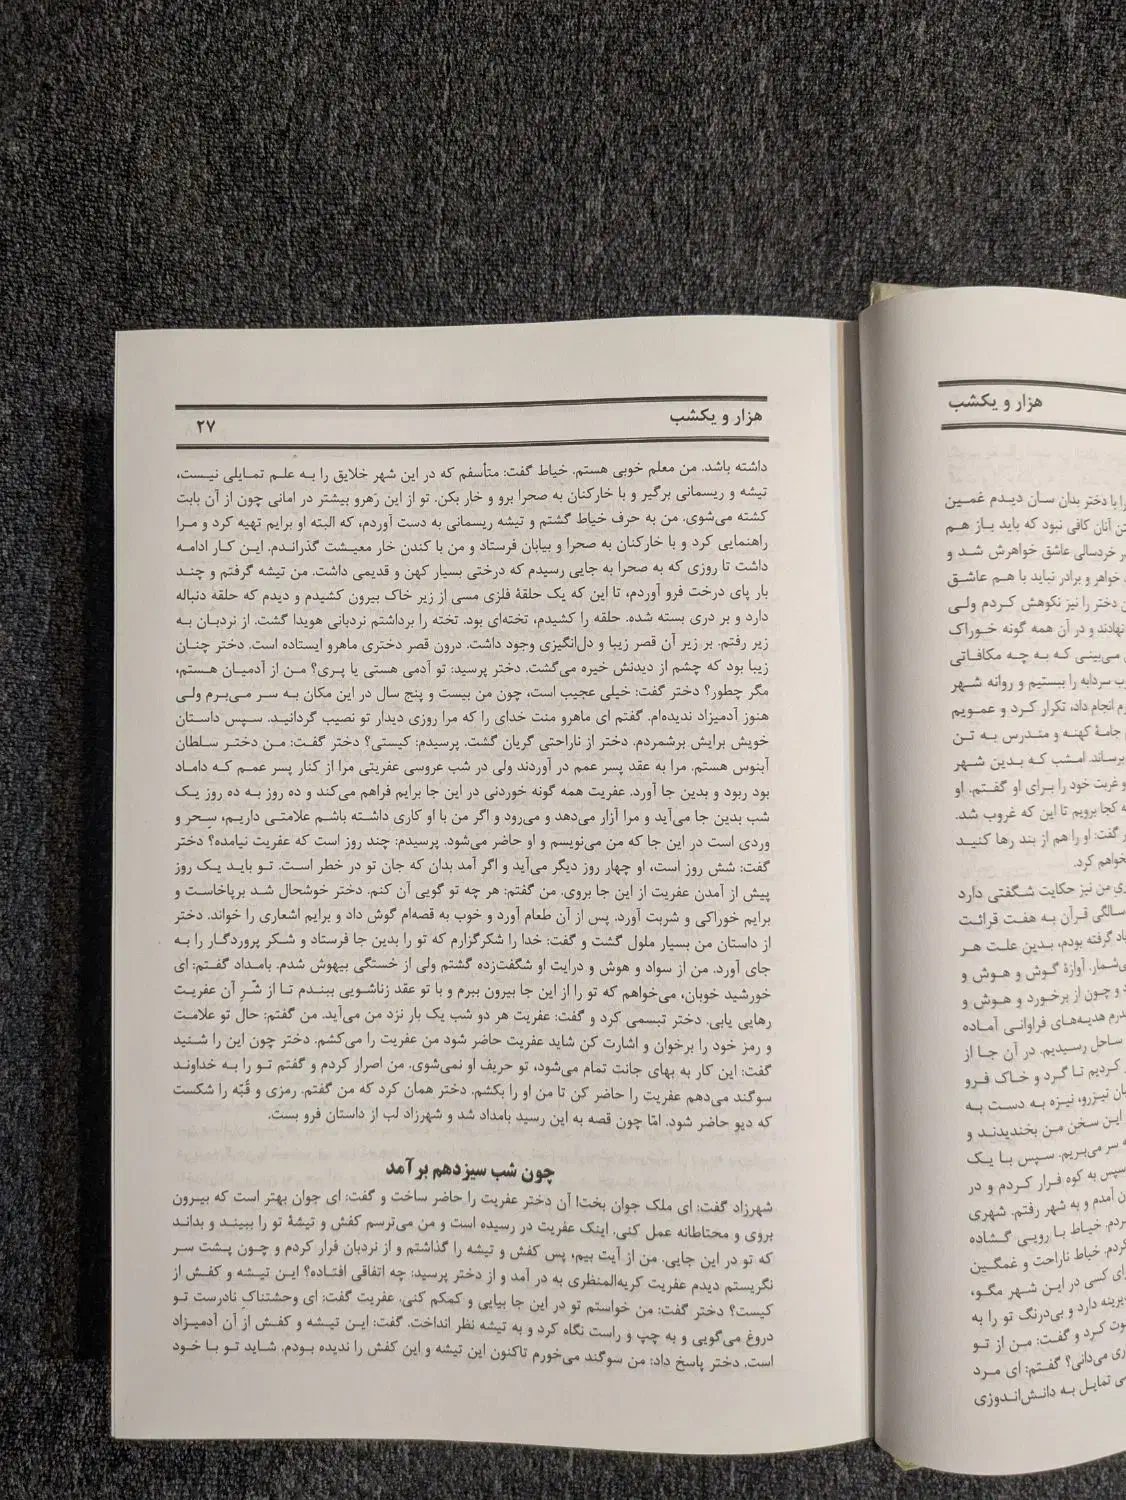 هزار و یکشب
۲۷
داشته باشد. من معلم خوبی هستم. خیاط گفت: متأسفم که در این شهر خلایق را به علم تمایلی نیست،
تیشه و ریسمانی برگیر و با خارکنان به صحرا برو و خار بکن. تو از این رَهرو بیشتر در امانی چون از آن بابت
کشته می‌شوی. من به حرف خیاط گشتم و تیشه ریسمانی به دست آوردم، که البته او برایم تهیه کرد و مرا
راهنمایی کرد و با خارکنان به صحرا و بیابان فرستاد و من با کندن خار معیشت گذراندم. این کار ادامه
داشت تا روزی که به صحرا به جایی رسیدم که درختی بسیار کهن و قدیمی داشت. من تیشه گرفتم و چند
بار پای درخت فرو آوردم، تا این که یک حلقهٔ فلزی مسی از زیر خاک بیرون کشیدم و دیدم که حلقه دنباله
دارد و بر دری بسته شده. حلقه را کشیدم، تخته‌ای بود. تخته را برداشتم نردبانی هویدا گشت. از نردبان به
زیر رفتم. بر زیر آن قصر زیبا و دل‌انگیزی وجود داشت. درون قصر دختری ماهرو ایستاده است. دختر چنان
زیبا بود که چشم از دیدنش خیره می‌گشت. دختر پرسید: تو آدمی هستی یا پری؟ من از آدمیان هستم،
مگر چطور؟ دختر گفت: خیلی عجیب است، چون من بیست و پنج سال در این مکان به سر می‌برم ولی
هنوز آدمیزاد ندیده‌ام. گفتم ای ماهرو منت خدای را که مرا روزی دیدار تو نصیب گردانید. سپس داستان
خویش برایش برشمردم. دختر از ناراحتی گریان گشت. پرسیدم: کیستی؟ دختر گفت: من دختر سلطان
آبنوس هستم. مرا به عقد پسر عمم در آوردند ولی در شب عروسی عفریتی مرا از کنار پسر عمم که داماد
بود ربود و بدین جا آورد. عفریت همه گونه خوردنی در این جا برایم فراهم می‌کند و ده روز به ده روز یک
شب بدین جا می‌آید و مرا آزار می‌دهد و می‌رود و اگر من با او کاری داشته باشم علامتی داریم، سِحر و
وردی است در این جا که من می‌نویسم و او حاضر می‌شود. پرسیدم: چند روز است که عفریت نیامده؟ دختر
گفت: شش روز است، او چهار روز دیگر می‌آید و اگر آمد بدان که جان تو در خطر است. تو باید یک روز
پیش از آمدن عفریت از این جا بروی. من گفتم: هر چه تو گویی آن کنم. دختر خوشحال شد برپاخاست و
برایم خوراکی و شربت آورد. پس از آن طعام آورد و خوب به قصه‌ام گوش داد و برایم اشعاری را خواند. دختر
از داستان من بسیار ملول گشت و گفت: خدا را شکرگزارم که تو را بدین جا فرستاد و شکر پروردگار را به
جای آورد. من از سواد و هوش و درایت او شگفت‌زده گشتم ولی از خستگی بیهوش شدم. بامداد گفتم: ای
خورشید خوبان، می‌خواهم که تو را از این جا بیرون ببرم و با تو عقد زناشویی ببندم تا از شّرِ آن عفریت
رهایی یابی. دختر تبسمی کرد و گفت: عفریت هر دو شب یک بار نزد من می‌آید. من گفتم: حال تو علامت
و رمز خود را برخوان و اشارت کن شاید عفریت حاضر شود من عفریت را می‌کشم. دختر چون این را شنید
گفت: این کار به بهای جانت تمام می‌شود، تو حریف او نمی‌شوی. من اصرار کردم و گفتم تو را به خداوند
سوگند می‌دهم عفریت را حاضر کن تا من او را بکشم. دختر همان کرد که من گفتم. رمزی و قُبّه را شکست
که دیو حاضر شود. امّا چون قصه به این رسید بامداد شد و شهرزاد لب از داستان فرو بست.
چون شب سیزدهم برآمد
شهرزاد گفت: ای ملک جوان بخت! آن دختر عفریت را حاضر ساخت و گفت: ای جوان بهتر است که بیرون
بروی و محتاطانه عمل کنی. اینک عفریت در رسیده است و من می‌ترسم کفش و تیشهٔ تو را ببیند و بداند
که تو در این جایی. من از آیت بیم، پس کفش و تیشه را گذاشتم و از نردبان فرار کردم و چون پشت سر
نگریستم دیدم عفریت کریه‌المنظری به در آمد و از دختر پرسید: چه اتفاقی افتاده؟ این تیشه و کفش از
کیست؟ دختر گفت: من خواستم تو در این جا بیایی و کمکم کنی. عفریت گفت: ای وحشتناکِ نادرست تو
دروغ می‌گویی و به چپ و راست نگاه کرد و به تیشه نظر انداخت. گفت: این تیشه و کفش از آن آدمیزاد
است. دختر پاسخ داد: من سوگند می‌خورم تاکنون این تیشه و این کفش را ندیده بودم. شاید تو با خود
هزار و یکشب
را با دختر بدان سان دیدم غمین
تن آنان کافی نبود که باید باز هم
در خردسالی عاشق خواهرش شد و
خواهر و برادر نباید با هم عاشق
ن دختر را نیز نکوهش کردم ولی
نهادند و در آن همه گونه خوراک
می‌بینی که به چه مکافاتی
وب سردابه را ببستیم و روانه شهر
رم انجام داد، تکرار کرد و عمویم
جامهٔ کهنه و مندرس به تن
برساند. امشب که بدین شهر
و غربت خود را برای او گفتم. او
ه کجا برویم تا این که غروب شد.
ر گفت: او را هم از بند رها کنید
خواهم کرد.
ی من نیز حکایت شگفتی دارد
سالگی قرآن به هفت قرائت
یاد گرفته بودم، بدین علت هر
ی‌شمار. آوازهٔ گوش و هوش و
د و چون از برخورد و هوش و
درم هدیه‌های فراوانی آماده
ساحل رسیدیم. در آن جا از
کردیم تا گرد و خاک فرو
ان تیزرو، نیزه به دست به
این سخن من بخندیدند و
ه سر می‌بریم. سپس با یک
سپس به کوه فرار کردم و در
ن آمدم و به شهر رفتم. شهری
ردم. خیاط با رویی گشاده
کردم. خیاط ناراحت و غمگین
رای کسی در این شهر مگو،
یرینه دارد و بی‌درنگ تو را به
وت کرد و گفت: من از تو
ری می‌دانی؟ گفتم: ای مرد
ی تمایل به دانش‌اندوزی